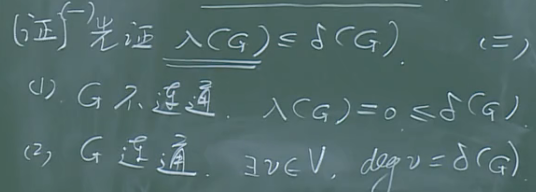 (证)(一) 先证 λ(G) ≤ δ(G). (二)
(1). G 不连通. λ(G)=0 ≤ δ(G).
(2), G 连通. ∃v∈V, deg v = δ(G).